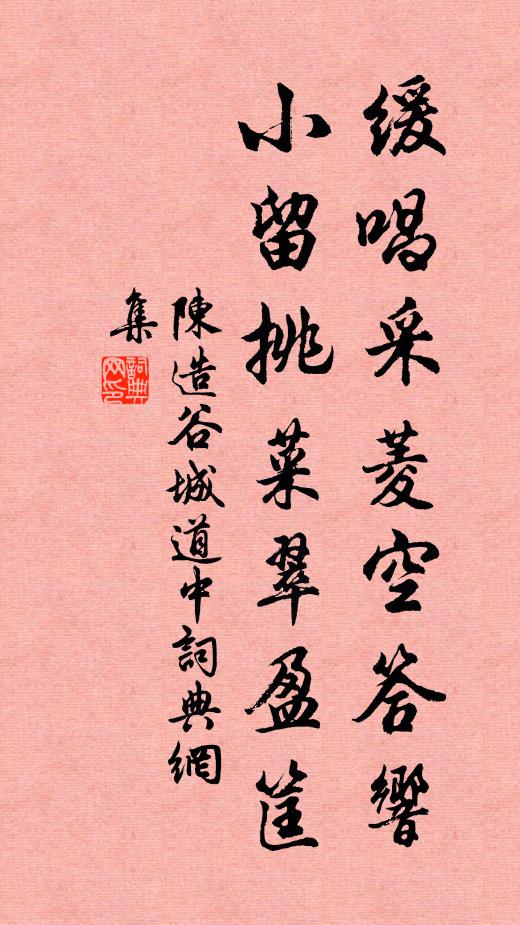 缓唱采菱空答響
小留挑菜翠盈筐
陳造谷城道中詞典網
集
詞典
网印